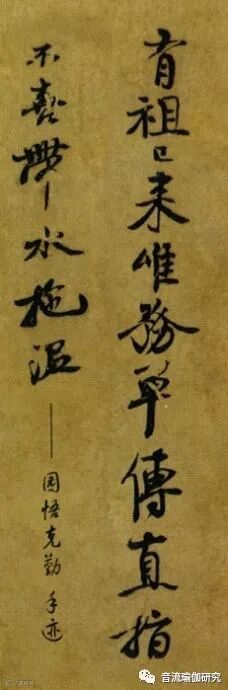 有祖已来唯務単傳直指
不喜帶水拖泥
——圆悟克勤 手迹
音流瑜伽研究